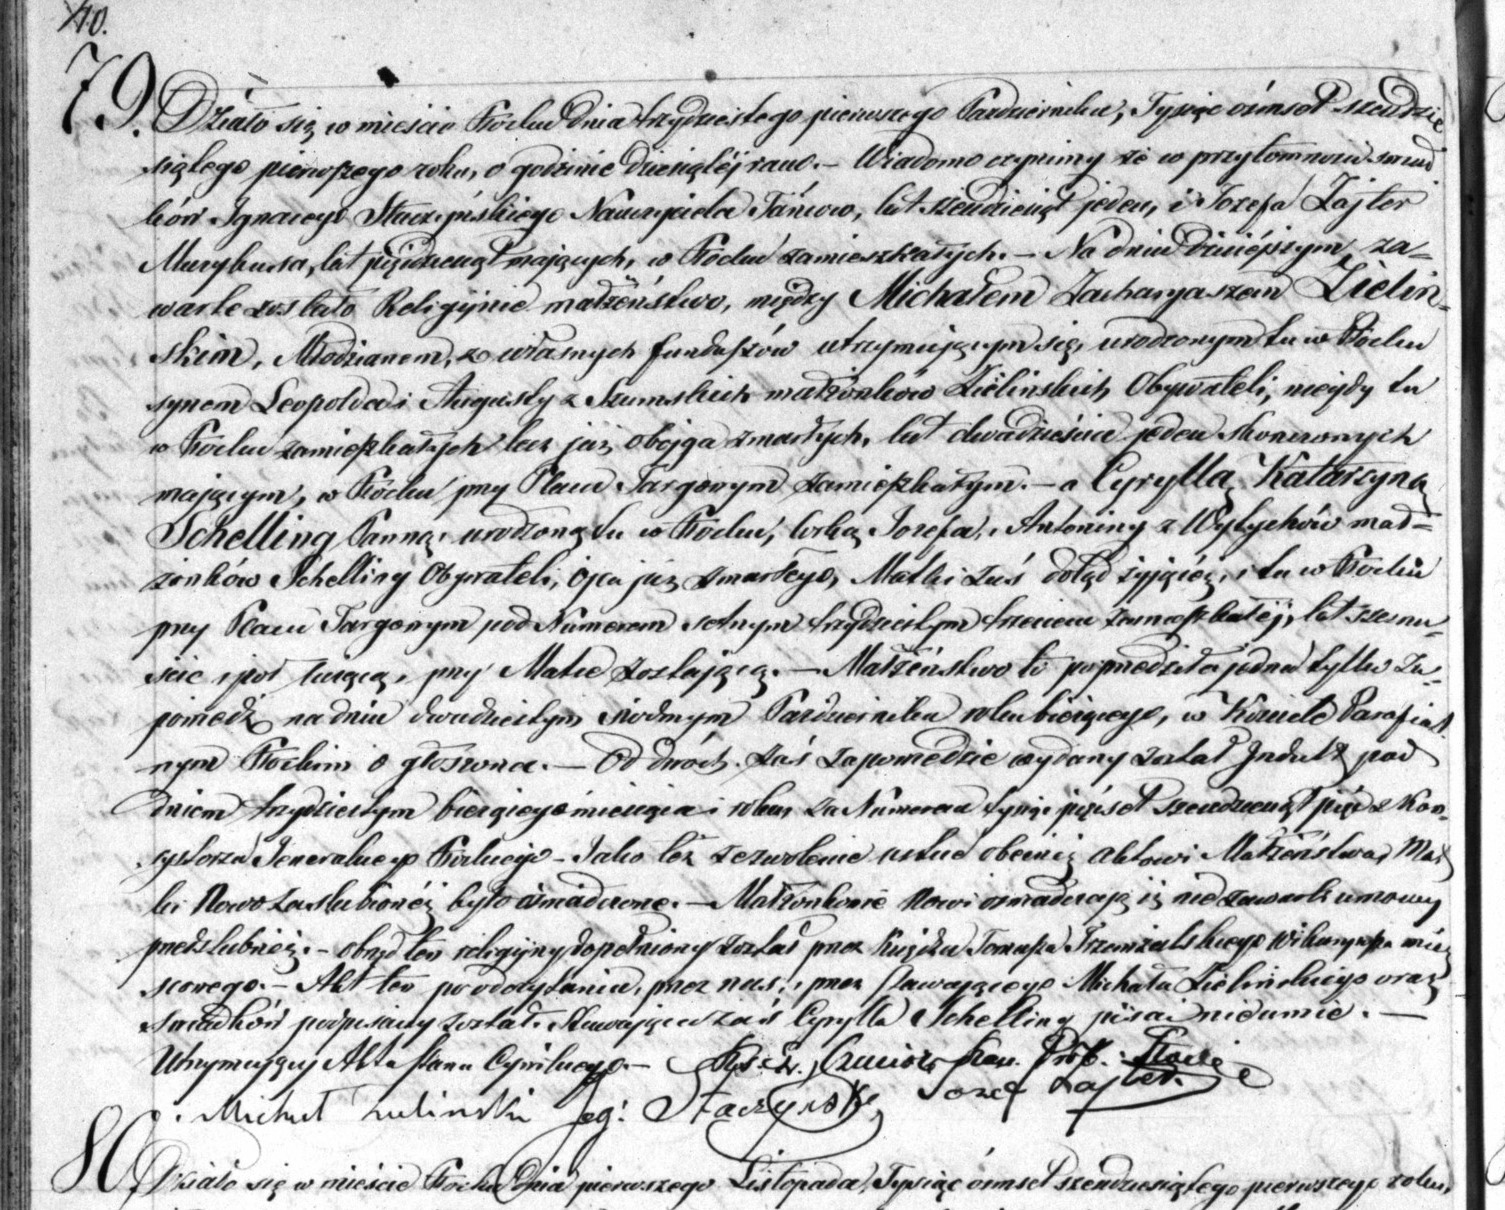 40.
79. Działo się w mieście Płocku dnia trzydziestego pierwszego Pazdziernika, Tysiąc ośmset szendzie
siątego pierwszego roku, o godzinie dziesiątéj rano. – Wiadomo czynimy że w przytomności swiad
ków Ignacego Staczyńskiego Nauczyciela Tańcow, lat szendziesiąt jeden, i Jozefa Lajter
Muzykusa, lat piędziesiąt mających, w Płocku zamieszkałych. – Na dniu dzisiéjszym za=
warte zostało Religijnie małżeństwo, między Michałem Zacharyaszem Zieliń=
skim, Młodzianem, z własnych funduszów utrzymującym się, urodzonym tu w Płocku
synem Leopolda i Augusty z Szumskich małżonków Zielinskich Obywateli, niegdy tu
w Płocku zamieszkałych lecz już obojga zmarłych, lat dwadzieścia jeden skonczonych
mającym, w Płocku przy Placu Targowym zamieszkałym. – a Cyryllą Katarzyną
Schelling Panną, urodzoną tu w Płocku, corką Jozefa, i Antoniny z Wytychów mał=
żonków Schelling Obywateli, ojca już zmarłego, Matki zaś dotąd żyjącéj, i tu w Płocku
przy Placu Targowym pod Numerem sotnym trzydziestym trzecim zamieszkałéj, lat szesna=
ście i pół liczącą, przy Matce zostającą. – Małżeństwo to poprzedziła jedna tylko Za=
powiedź na dniu dwudziestym siodmym Pazdziernika roku bieżącego, w Kościele Parafial
nym Płockim ogłoszona. – Od dwóch zaś zapowiedzi wydany został Indult pod
dniem trzydziestym bieżącego miesiąca i roku za Numerem tysiąc pięćset szendziesiąt pięć z Kon=
systorza Jeneralnego Płockiego – Jako też zezwolenie ustne obecnéj aktowi Małżeństwa, Mat
ki Nowozaslubionéj było oświadczone. – Małżonkowie Nowi oswiadczają iż nie zawarli umowy
przedslubnéj. – obrząd ten religijny dopełniony został przez Księdza Tomasza Wikaryusza miéj
scowego. – Akt ten po odczytaniu, przez nas, i przez stawającego Michała Zielinskiego oraz
swiadków podpisany został. Stawająca zaś Cyrylla Schelling pisać nieumie. –
Utrzymujący Akta Stanu Cywilnego. – Prob. Płocki
Michał Zielinski Ig: Staczyński Jozef Lajter.
80. Działo się w mieście Płocku dnia pierwszego Listopada, Tysiąc ośmset szendziesiątego pierwszego roku,